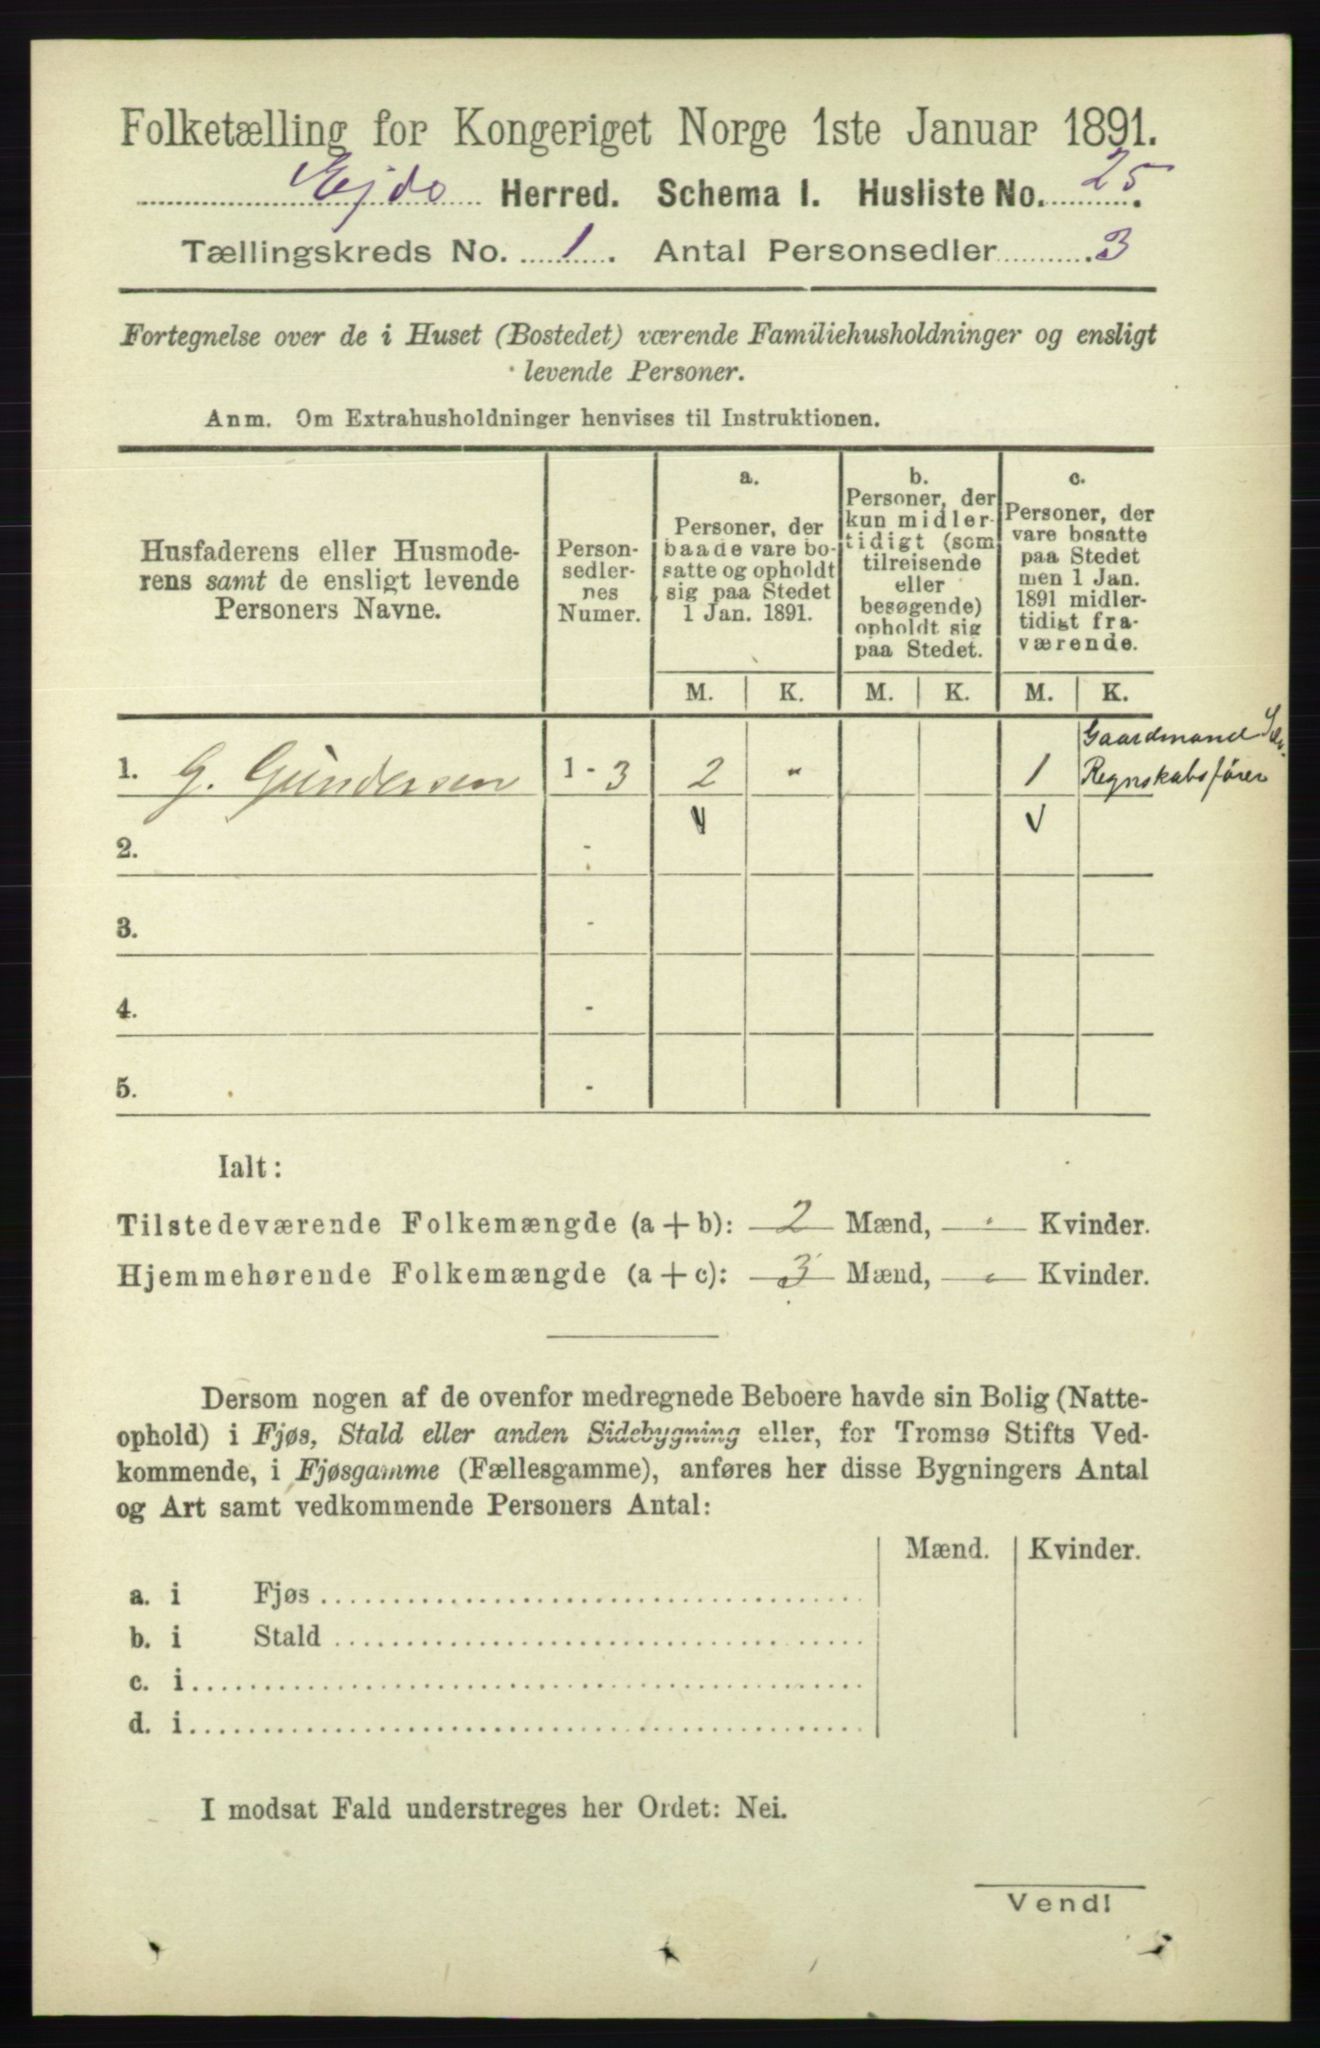 Folketælling for Kongeriget Norge 1ste Januar 1891.
Ejde Herred. Schema I. Husliste No. 25.
Tællingskreds No. 1. Antal Personsedler 3
Fortegnelse over de i Huset (Bostedet) værende Familiehusholdninger og ensligt
levende Personer.
Anm. Om Extrahusholdninger henvises til Instruktionen.
Husfaderens eller Husmode-
rens samt de ensligt levende
Personers Navne.
Person-
sedler-
nes
Numer.
a.
Personer, der
baade vare bo-
satte og opholdt
sig paa Stedet
1 Jan. 1891.
b.
Personer, der
kun midler-
tidigt (som
tilreisende
eller
besøgende)
opholdt sig
paa Stedet.
c.
Personer, der
vare bosatte
paa Stedet
men 1 Jan.
1891 midler-
tidigt fra-
værende.
M. K. M. K. M. K.
Gaardmand
1. G. Gundersen 1 - 3 2 " 1 Regnskabsfører
2. -
3. -
4. -
5. -
Ialt:
Tilstedeværende Folkemængde (a + b): 2 Mænd, - Kvinder.
Hjemmehørende Folkemængde (a + c): 3 Mænd, - Kvinder.
Dersom nogen af de ovenfor medregnede Beboere havde sin Bolig (Natte-
ophold) i Fjøs, Stald eller anden Sidebygning eller, for Tromsø Stifts Ved-
kommende, i Fjøsgamme (Fællesgamme), anføres her disse Bygningers Antal
og Art samt vedkommende Personers Antal:
Mænd. Kvinder.
a. i Fjøs
b. i Stald
c. i
d. i
I modsat Fald understreges her Ordet: Nei.
Vend!